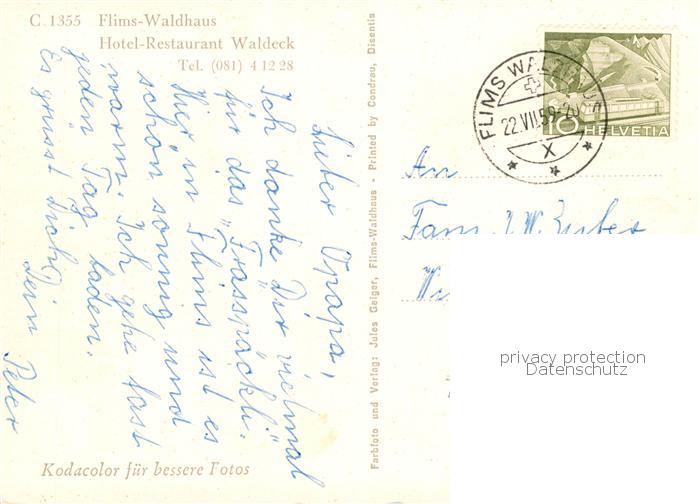 C 1355 Flims-Waldhaus
Hotel-Restaurant Waldeck
Tel. (081) 4 12 28
Lieber Opapa,
Ich danke Dir vielmal
für das „Frasspäckli".
Hier in Flims ist es
schön sonnig und
warm. Ich gehe fast
jeden Tag baden.
Es grüsst Dich
Dein Peter
Kodacolor für bessere Fotos
Farbfoto und Verlag: Jules Geiger, Flims-Waldhaus - Printed by Condrau, Disentis
FLIMS WALDHAUS
22.VII.59
X
10 HELVETIA
An
Fam. W. Zuber
privacy protection
Datenschutz